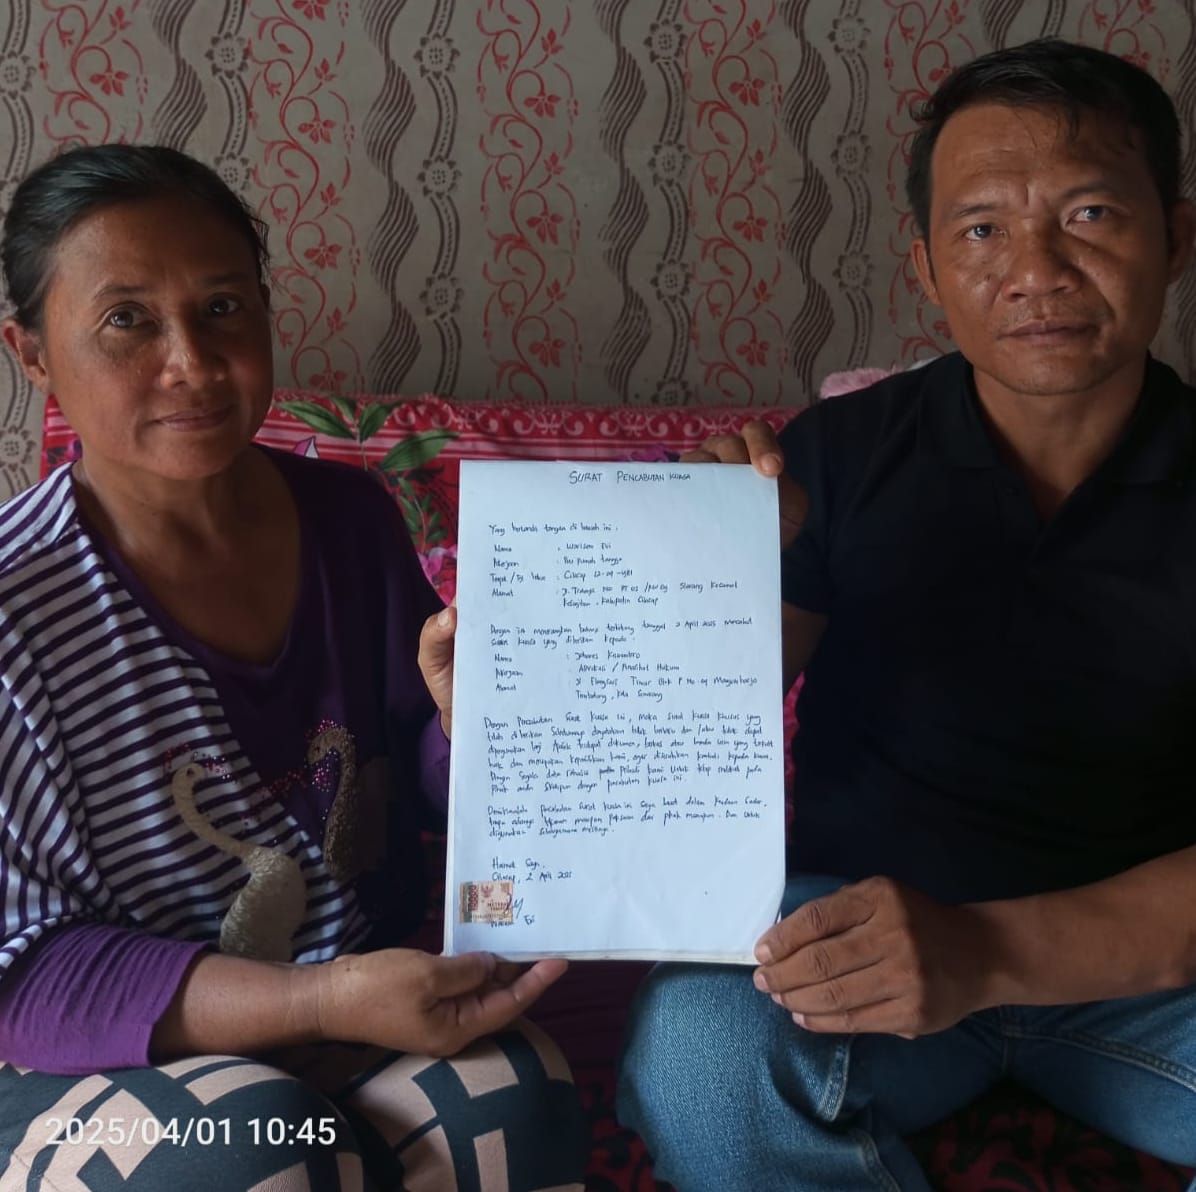 SURAT PENCABUTAN KUASA
Yang bertanda tangan di bawah ini :
Nama :
Pekerjaan : Ibu rumah tangga
Tempat / Tgl lahir : Cilacap 12-04-1981
Alamat : Jl. RT 03 /
Kabupaten Cilacap
Dengan ini menerangkan bahwa terhitung tanggal 2 April 2025 mencabut
surat kuasa yang diberikan kepada :
Nama : Johanes
Pekerjaan : Advokat / Penasihat Hukum
Alamat : Jl Timur Blok P No 04
Tembalang, Kota Semarang
Dengan Pencabutan Surat Kuasa ini, maka Surat Kuasa Khusus yang
telah diberikan Sebelumnya dinyatakan tidak berlaku dan / atau tidak dapat
dipergunakan lagi Apabila terdapat dokumen, berkas atau benda lain yang
dan merupakan kami, agar diserahkan kembali kepada kami.
Dengan Segala data Pribadi kami Untuk tetap pada
Pihak anda dengan pencabutan kuasa ini.
Demikianlah pencabutan Surat kuasa ini Saya buat dalam Keadaan Sadar,
tanpa adanya paksaan dari pihak manapun. Dan Untuk
digunakan Sebagaimana mestinya.
Hormat Saya.
Cilacap, 2 April 2025
10000
METERAI
TEMPEL
2025/04/01 10:45